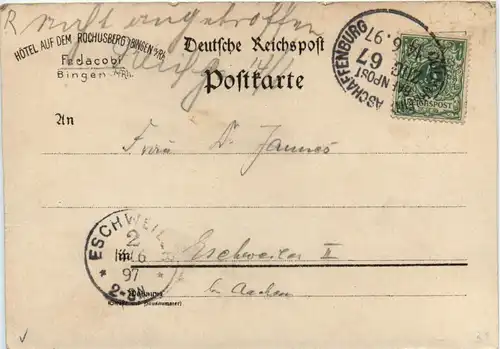 R nicht angetroffen
HÔTEL AUF DEM ROCHUSBERG B/BINGEN A/RH.
Fr. Jacobi
Bingen a/Rh.
Deutsche Reichspost
Postkarte
ASCHAFFENBURG
BAHNPOST
67
97
REICHSPOST
An
Frau Dr. Jannes
ESCHWEILER
2
97
2-3N
Eschweiler II
bei Aachen
Wohnung
(Straße und Hausnummer)